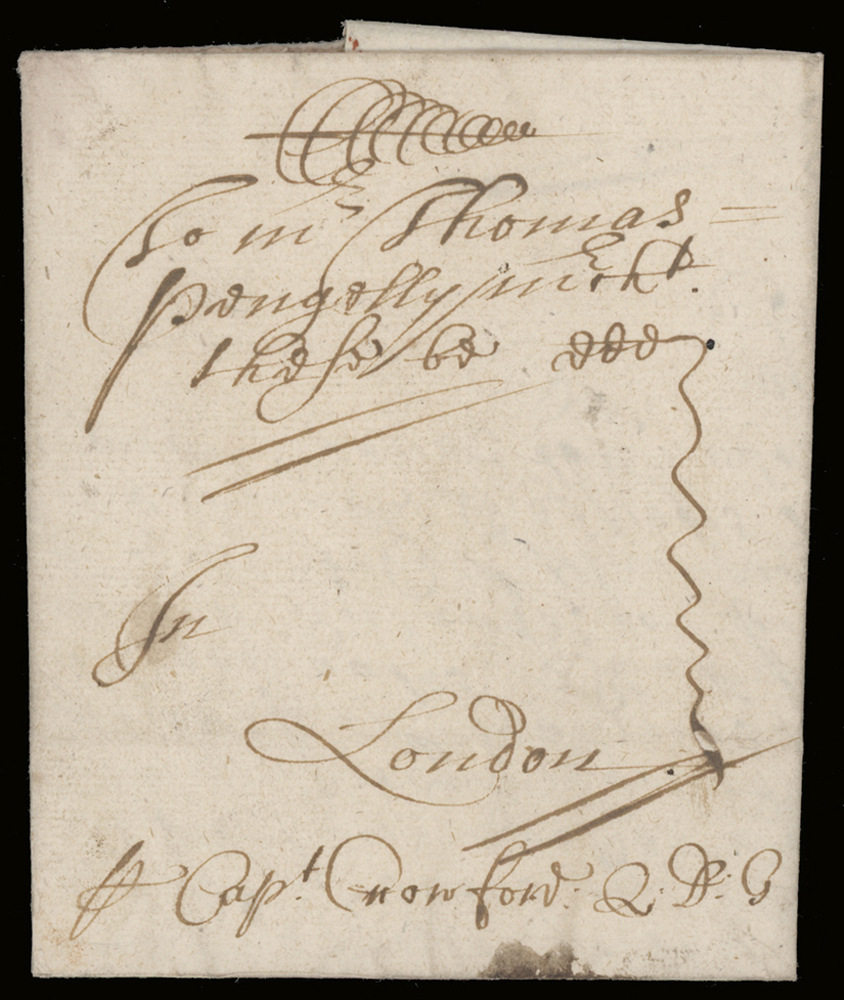 To mr Thomas
Pengelly mrcht.
these be ddd
In
London
p Capt. Crowford: Q: D: G